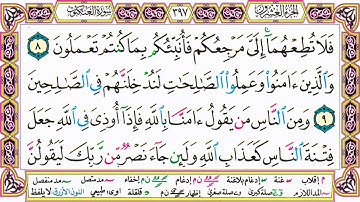 الجزء العشرون ٣٩٧ سورة العنكبوت
فَلَا تُطِعْهُمَا إِلَىَّ مَرْجِعُكُمْ فَأُنَبِّئُكُم بِمَا كُنتُمْ تَعْمَلُونَ ٨
وَالَّذِينَ ءَامَنُوا وَعَمِلُوا الصَّالِحَاتِ لَنُدْخِلَنَّهُمْ فِى الصَّالِحِينَ
٩ وَمِنَ النَّاسِ مَن يَقُولُ ءَامَنَّا بِاللَّهِ فَإِذَا أُوذِىَ فِى اللَّهِ جَعَلَ
فِتْنَةَ النَّاسِ كَعَذَابِ اللَّهِ وَلَئِن جَاءَ نَصْرٌ مِّن رَّبِّكَ لَيَقُولُنَّ